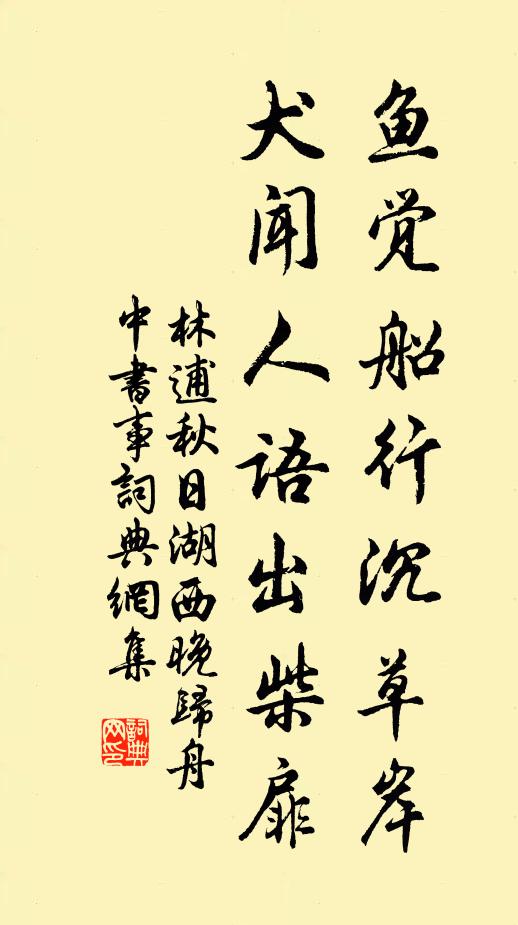 鱼觉船行沉草岸
犬闻人语出柴扉
林逋秋日湖西晚歸舟
中書事詞典網集
詞典网印